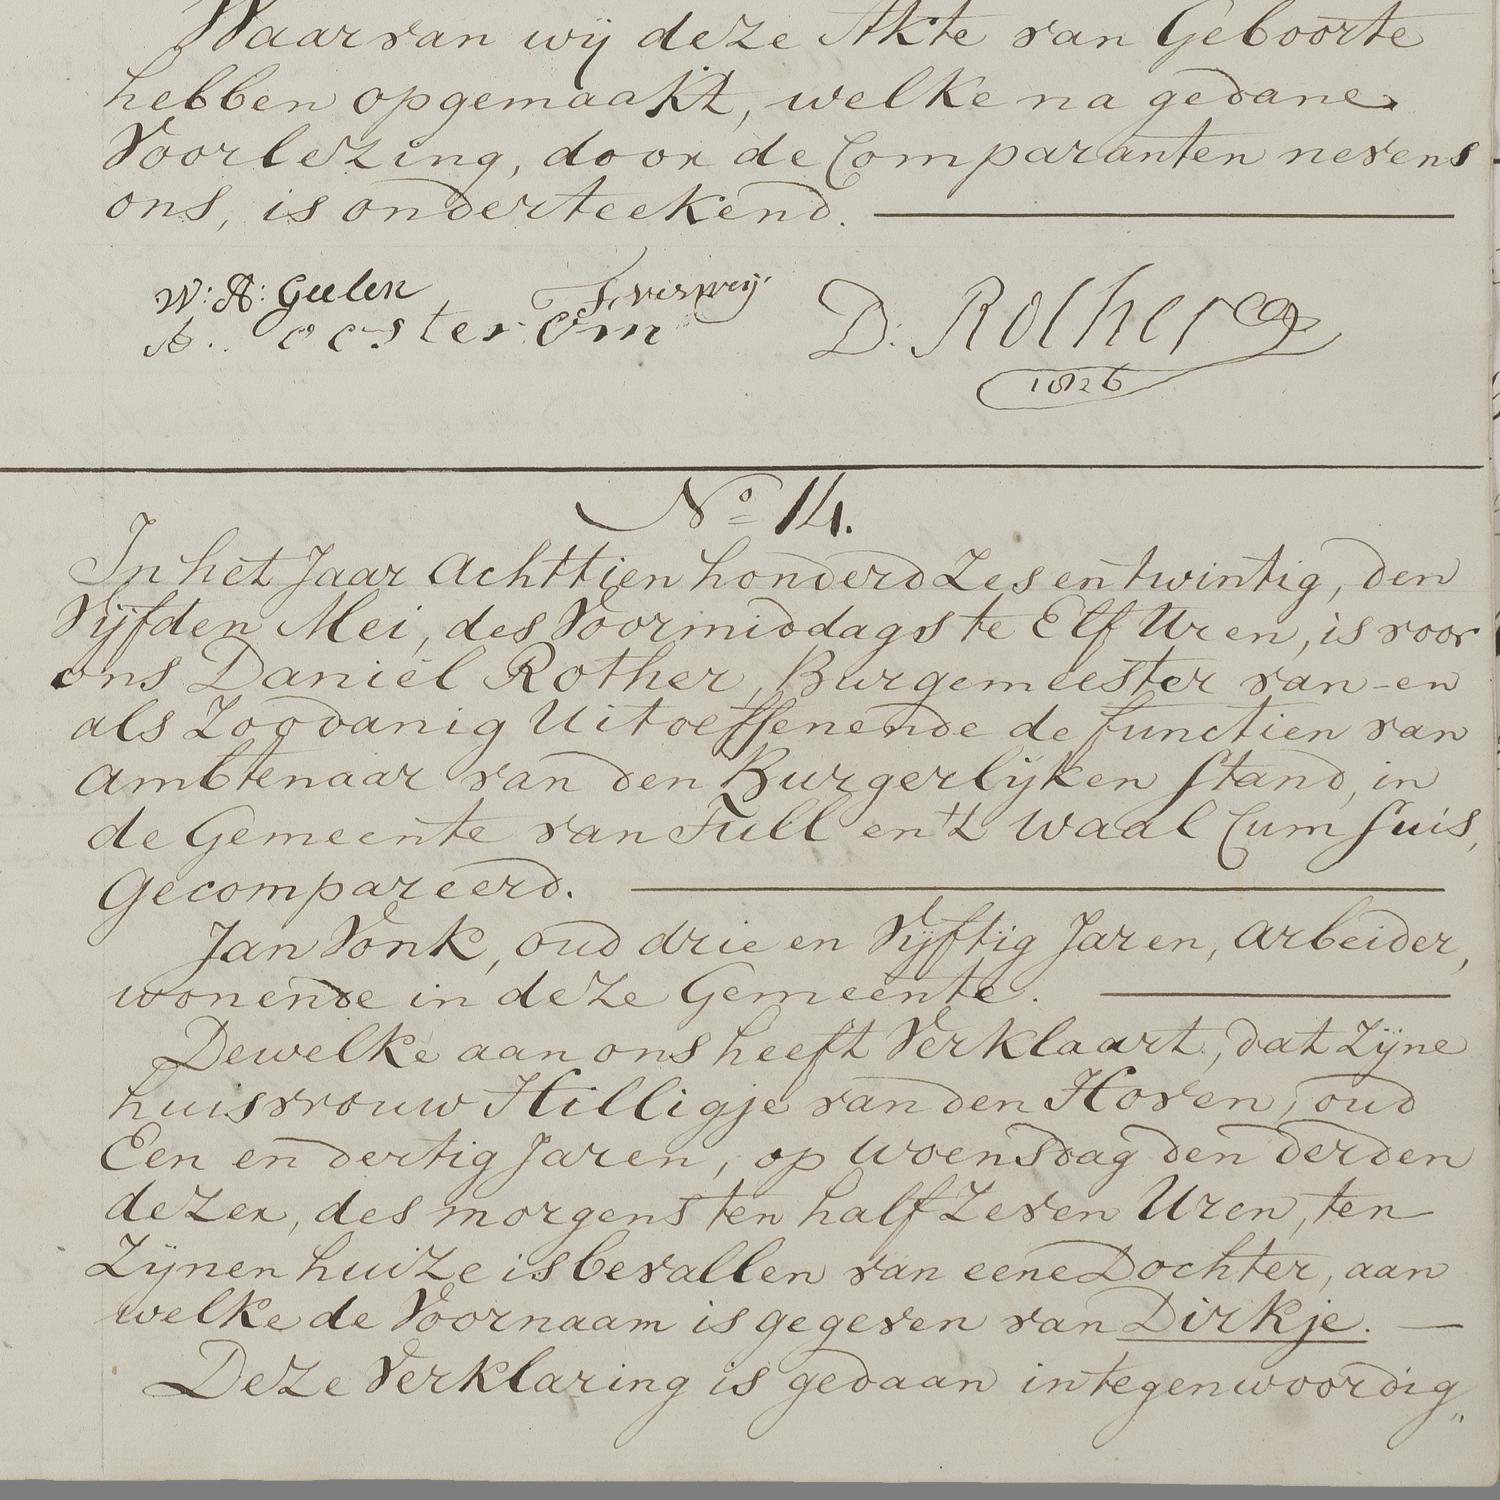 Waarvan wij deze Akte van Geboorte
hebben opgemaakt, welke na gedane
Voorlezing, door de Comparanten nevens
ons, is onderteekend.
W: A: Geelen F. verweij
A. oosterom D: Rother
1826
No 14.
In het Jaar Achttien honderd Zes en twintig, den
Vijfden Mei, des Voormiddags te Elf Uren, is voor
ons Daniël Rother, Burgemeester van - en
als Zoodanig Uitoeffenende de functien van
Ambtenaar van den Burgerlijken Stand, in
de Gemeente van Tull en 't Waal Cum Suis,
Gecompareerd.
Jan Vonk, oud drie en Vijftig Jaren, Arbeider,
wonende in deze Gemeente.
Dewelke aan ons heeft Verklaart, dat Zijne
huisvrouw Hilligje van den Hoven, oud
Een en dertig Jaren, op Woensdag den derden
dezer, des morgens ten half Zeven Uren, ten
Zijnen huize is bevallen van eene Dochter, aan
welke de Voornaam is gegeven van Dirkje.
Deze Verklaring is gedaan in tegenwoordig„